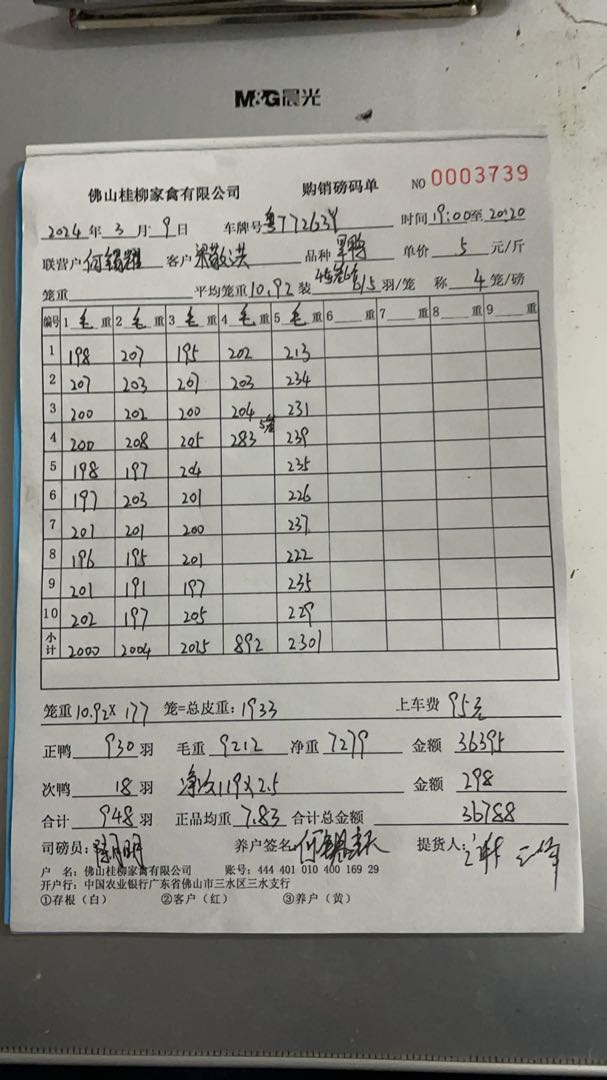 M&G晨光
佛山桂柳家禽有限公司 购销磅码单 NO 0003739
2024年3月9日 车牌号 粤T7263Y 时间 19:00至20:20
联营户 何锡耀 客户 梁敬洪 品种 单价 5 元/斤
笼重 平均笼重10.92 装 6/5 羽/笼 称 4 笼/磅
编号 1 毛 重 2 毛 重 3 毛 重 4 毛 重 5 毛 重 6 重 7 重 8 重 9 重
1 198 207 195 202 213
2 207 203 207 203 234
3 200 202 200 204 231
4 200 208 205 283 5笼 239
5 198 197 204 235
6 197 203 201 226
7 201 201 200 237
8 196 195 201 222
9 201 191 197 235
10 202 197 205 229
小计 2000 2004 2015 892 2301
笼重10.92X177 笼=总皮重:1933 上车费 95元
正鸭 930 羽 毛重 9212 净重 7279 金额 36395
次鸭 18 羽 净次119X2.5 金额 298
合计 948 羽 正品均重 7.83 合计总金额 36788
司磅员: 养户签名 提货人:
户 名:佛山桂柳家禽有限公司 账号:444 401 010 400 169 29
开户行:中国农业银行广东省佛山市三水区三水支行
①存根(白) ②客户(红) ③养户(黄)